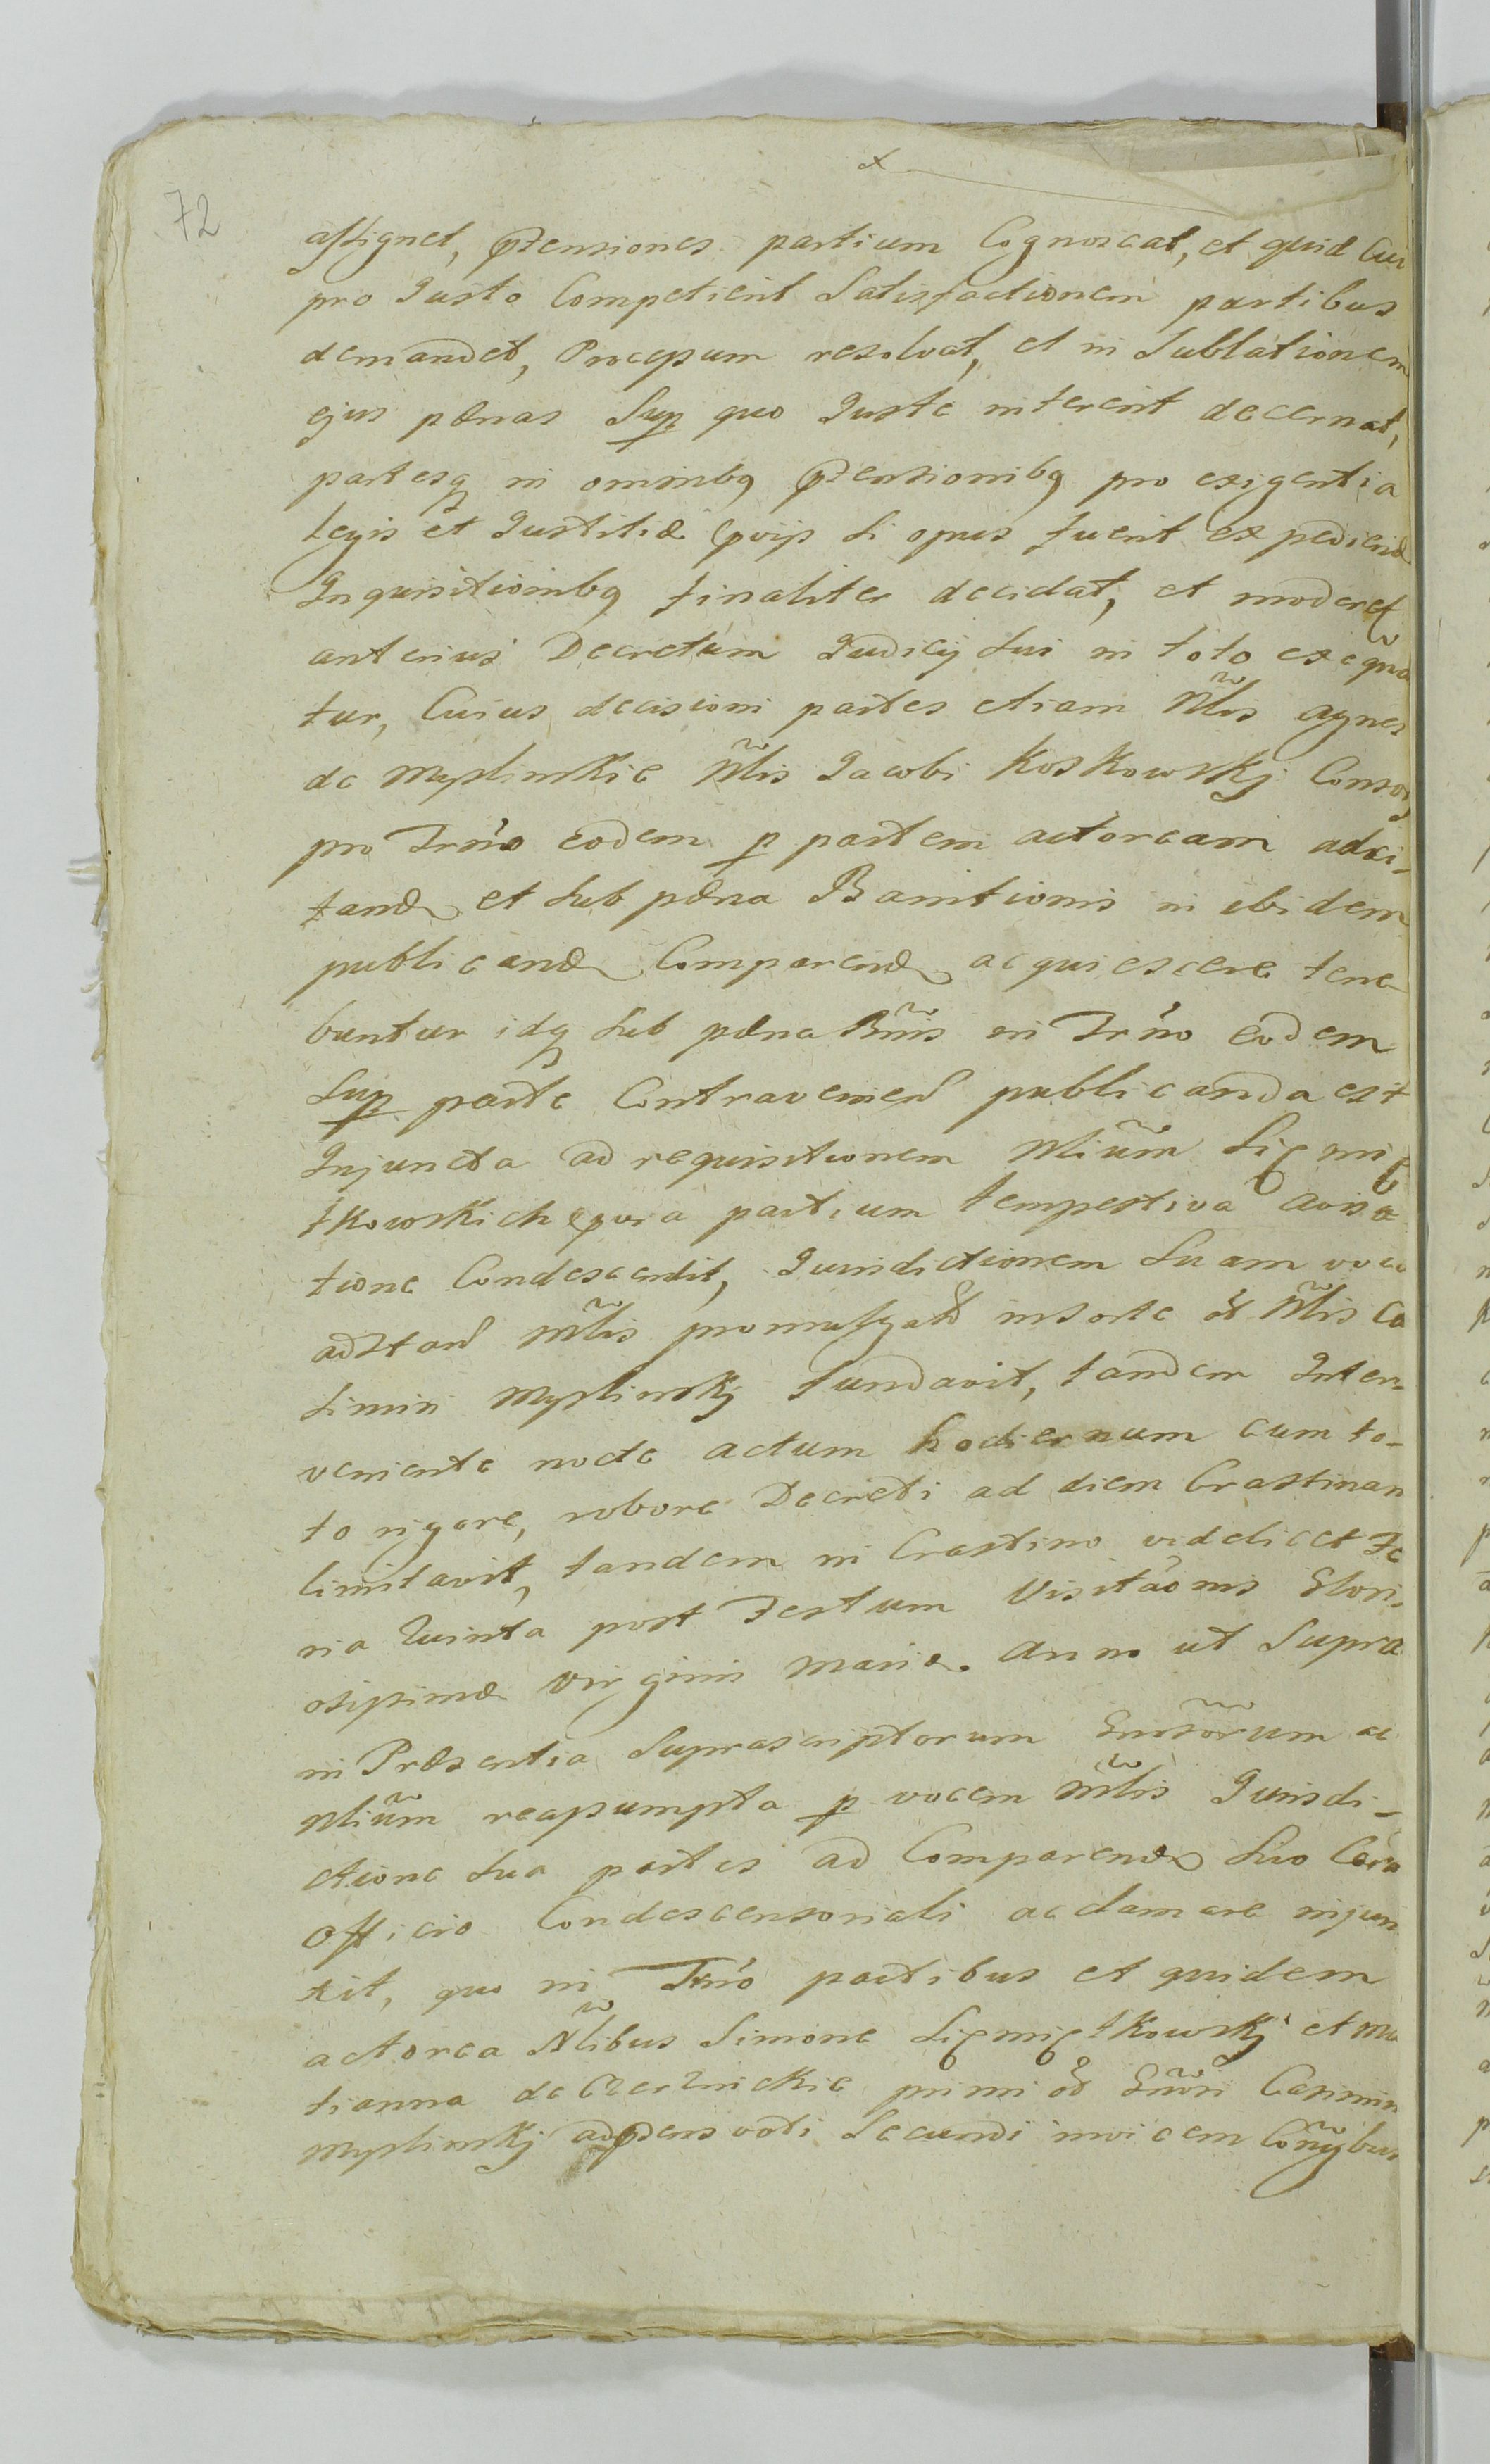 72
assignet, p̃tensiones partium Cognoscat, et quid Cui
pro Justo Competierit Satisfactionem partibus
demandet, Processum resolvat, et in Sublationem
ejus pænas Sup quo Juste intererit decernat,
partesq in omnibq p̃tensionibq pro exigentia
legis et Justitiæ pvijs si opus fuerit expediend
Inquisitionibq finaliter decidat, et moderet
anterius Decretum Judicij sui in toto exequa
tur, Cuius decisioni partes etiam Nłis Agnes
de Myslinskie Nłis Jacobi Koskowskj Consors
pro Trńo eodem p partem actoream adci-
tand et sub pæna Banitionis in ibidem
publicand Comparend acquiescere tene
buntur idq sub pæna Bnnis in Trńo eodem
Sup parte Contravenien publicanda est
Injuncta ad requisitionem Nlium Siemię
tkowskich pvia partium tempestiva avisa
tione Condescendit, Jurisdictionem Suam voce
adstan Młis promulgatd insorte old Młis Ca
simiri Myslinskj fundavit, tandem Inter-
veniente nocte actum hodiernum cum to-
to rigore, robore Decreti ad diem Crastinan
limitavit, tandem in Crastino videlicet Fe
ria Quinta post Festum Visitaõnis Glori-
osissimæ Virginis Mariæ. Anno ut Supra
in Præsentia Suprascriptorum Gnosõrum ac
Nlium reassumpta p vocem Młis Jurisdi-
ctione sua partes ad Comparend suo Cora
Officio Condescensoriali acclamare injun
xit, quo in Trńo partibus et quidem
actorea Nłibus Simone Siemiętkowskj et Ma
rianna de Czerznickie primi old Gnõsi Casimiri
Myslinskj adpdens voti Secundi invicem Cõnjbus